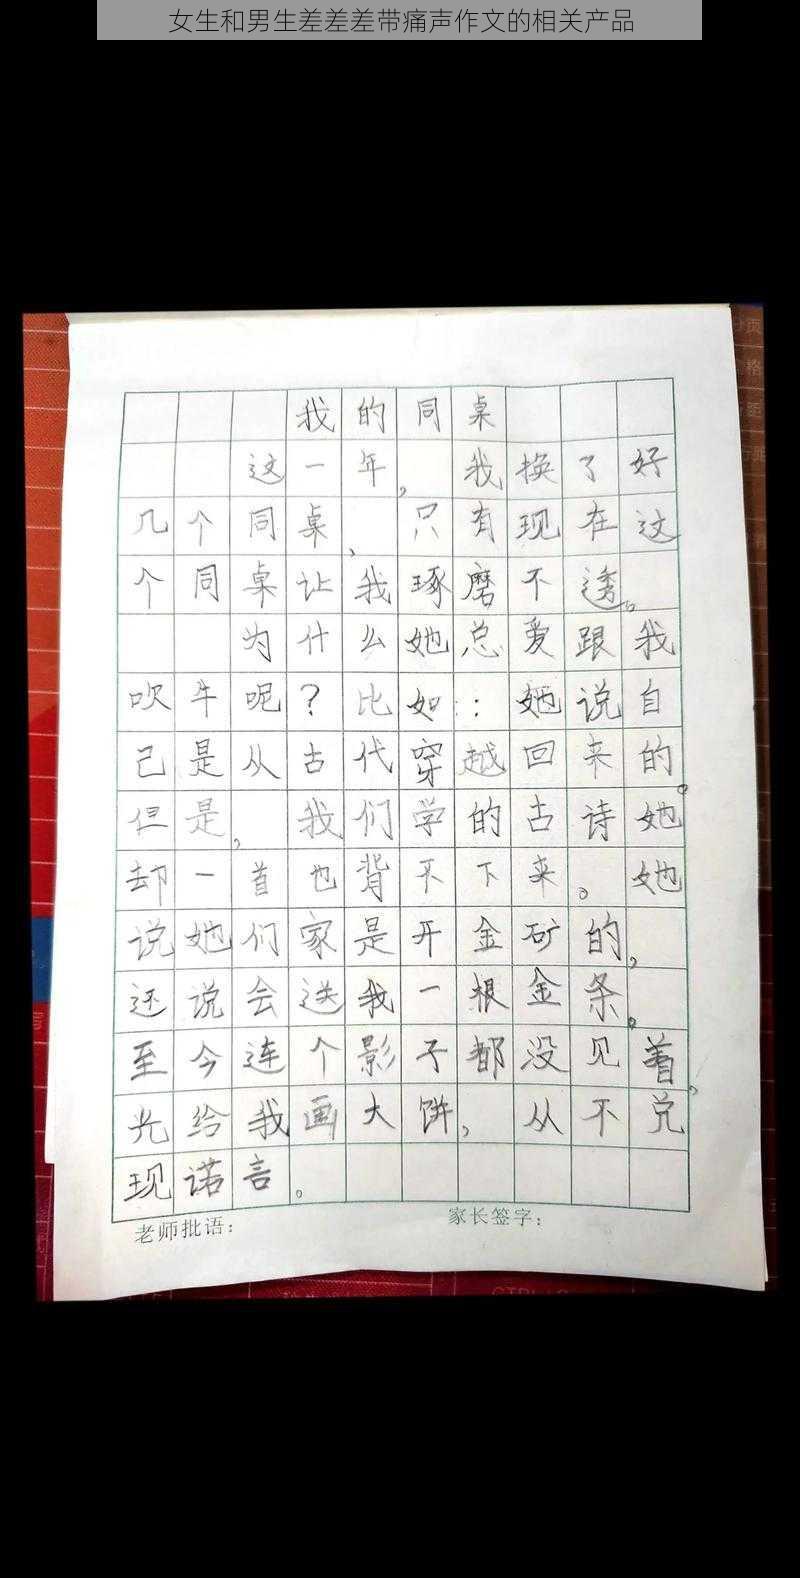 女生和男生差差差带痛声作文的相关产品
我的同桌
这一年，我换了好
几个同桌，只有现在这
个同桌让我琢磨不透。
为什么她总爱跟我
吹牛呢？比如：她说自
己是从古代穿越回来的。
但是，我们学的古诗她
却一首也背不下来。她
说她们家是开金矿的，
还说会送我一根金条。
至今连个影子都没见着。
光给我画大饼，从不兑
现诺言。
老师批语：
家长签字：